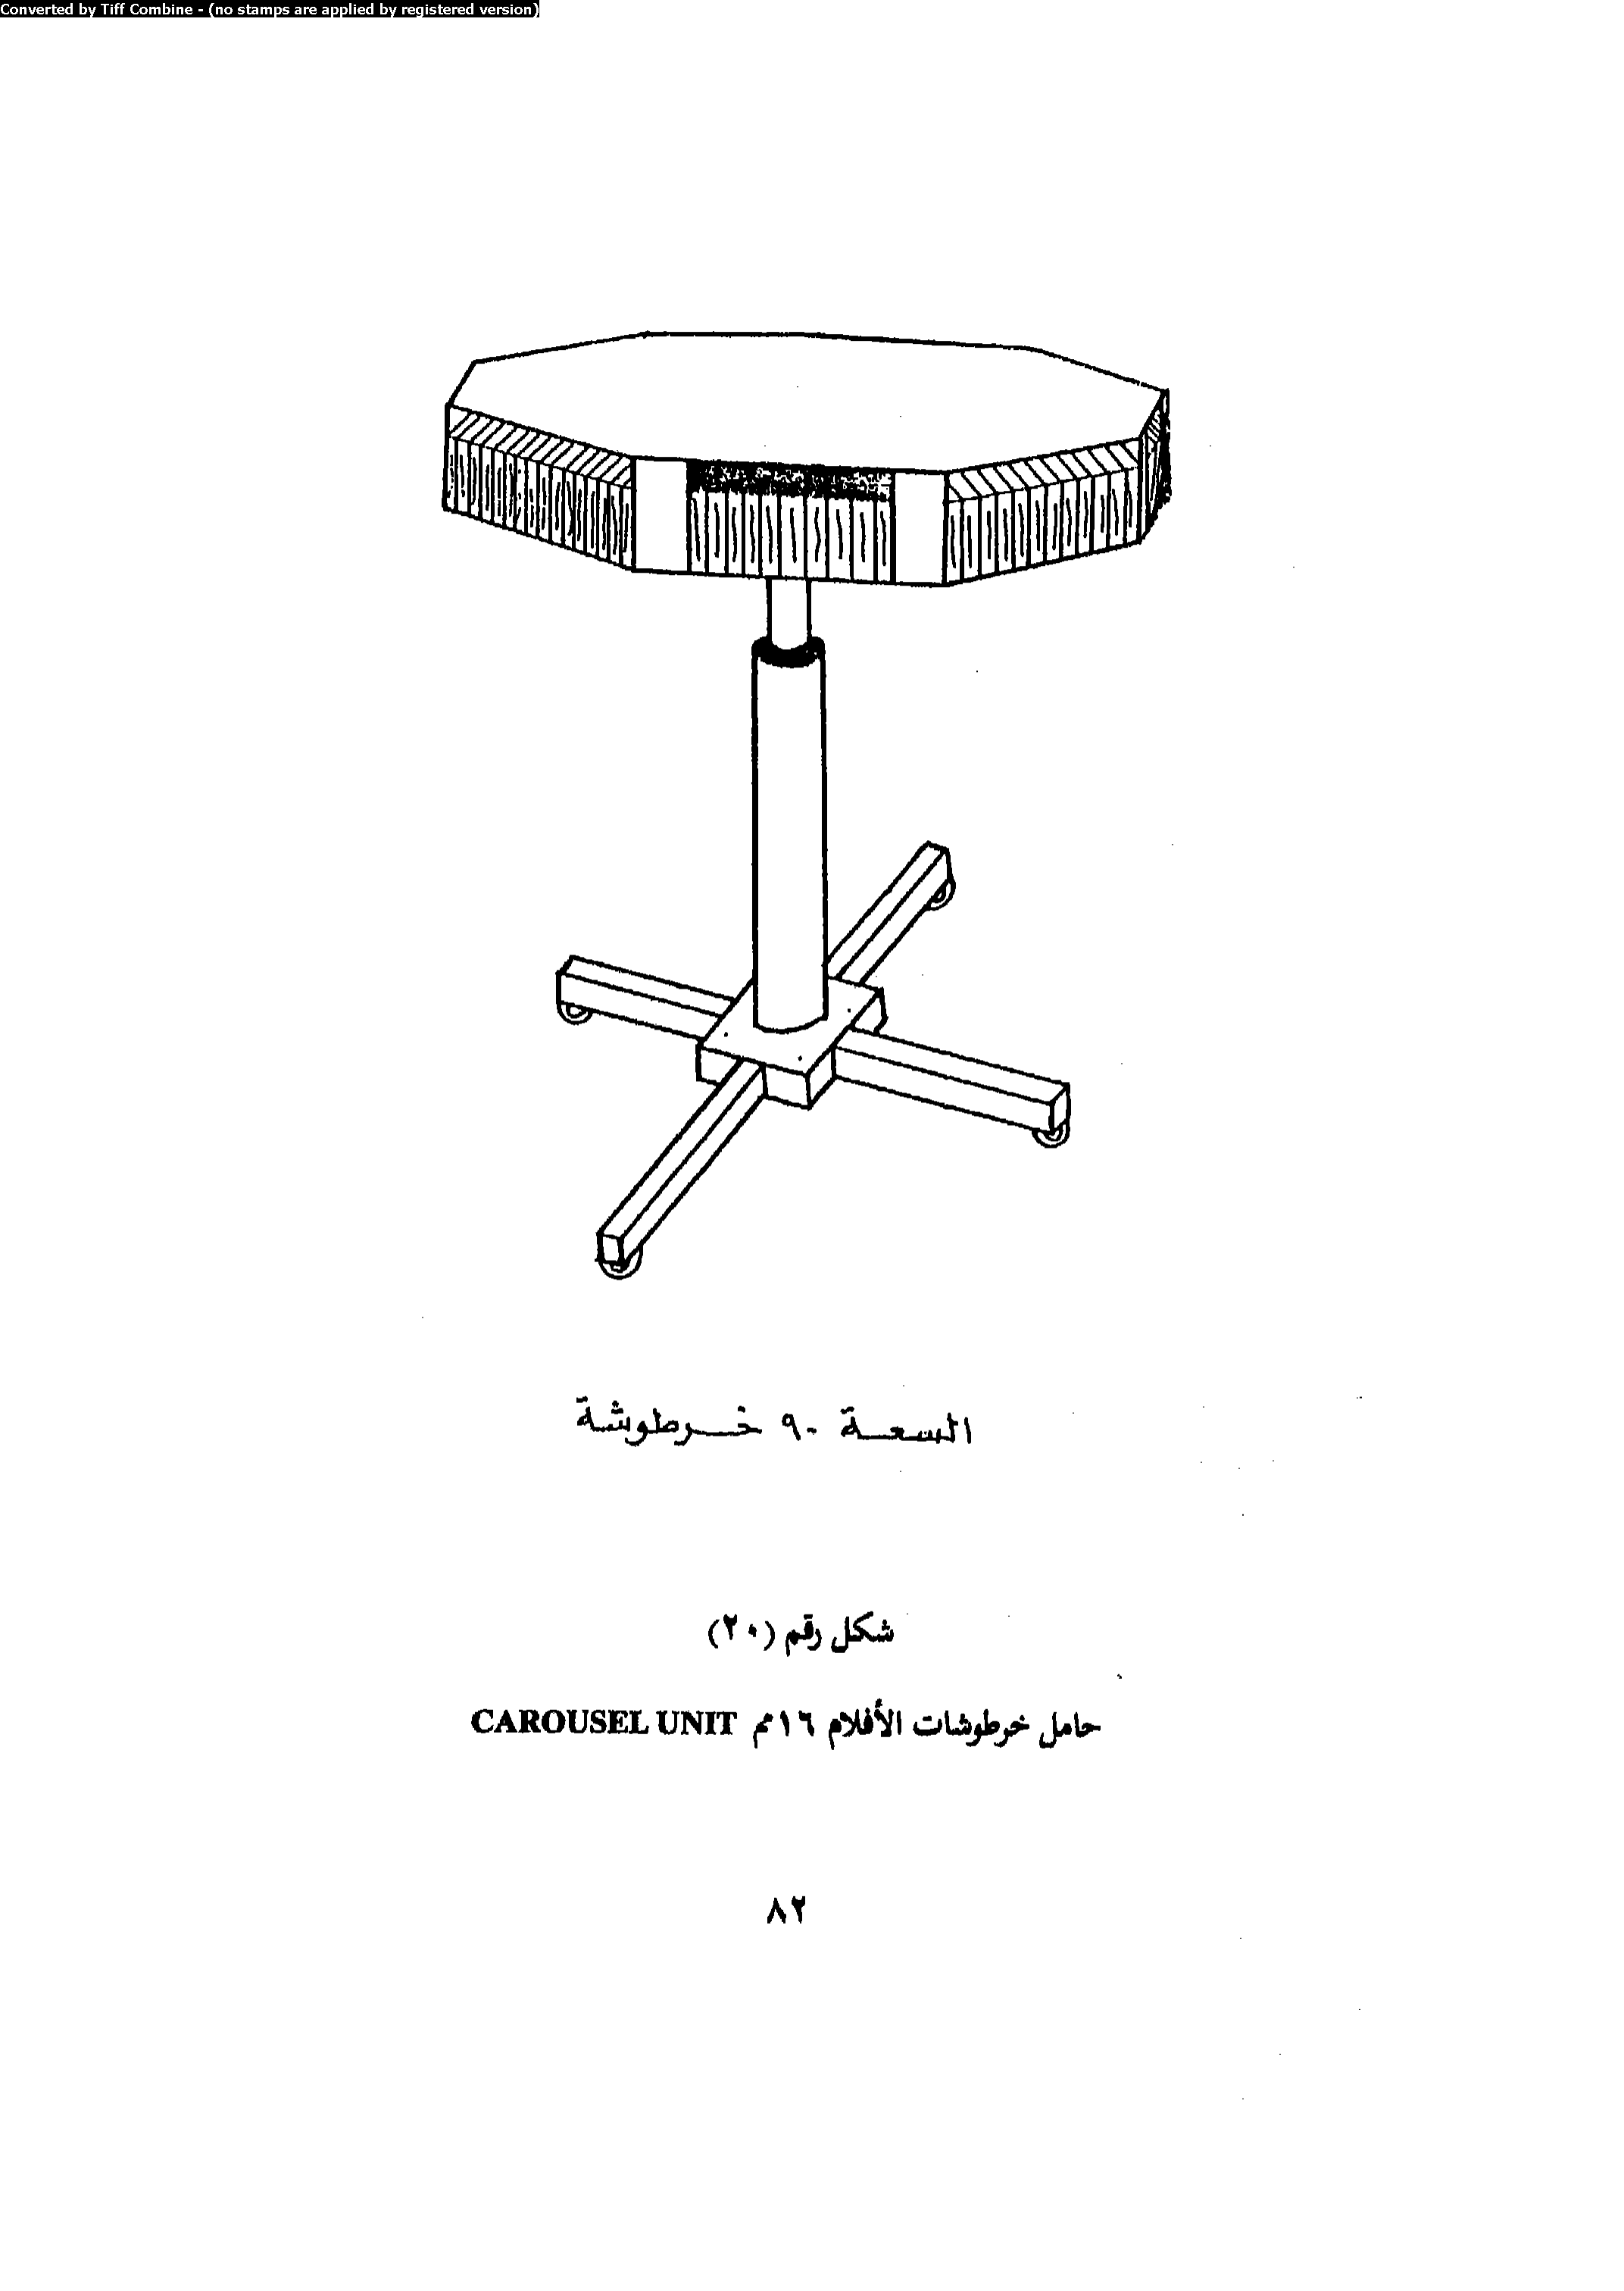 Converted by Tiff Combine - (no stamps are applied by registered version)
السعة ٩٠ خرطوشة
شكل رقم (٢٠)
حامل خرطوشات الأفلام ١٦مم CAROUSEL UNIT
٨٢